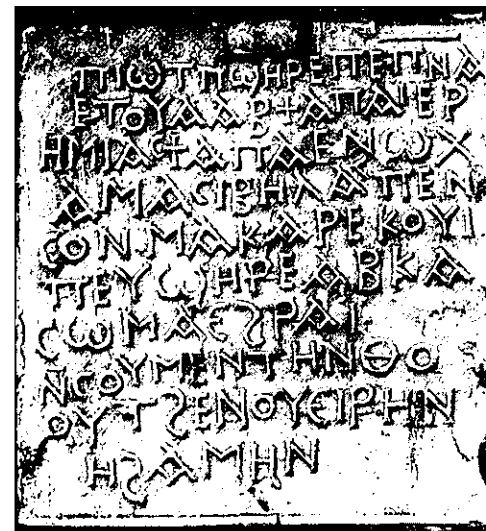 ⲠⲒⲰⲦⲠϢⲎⲢⲈⲠⲈⲠⲚⲀ
ⲈⲦⲞⲨⲀⲀⲂϮⲀⲠⲀⲒⲈⲢ
ⲎⲘⲒⲀⲤϮⲀⲠⲀⲈⲚⲰⲬ
ⲀⲘⲀⲤⲒⲂⲎⲖⲖⲀⲠⲈⲚ
ⲤⲞⲚⲘⲀⲔⲀⲢⲈⲔⲞⲨⲒ
ⲠⲈⲨϢⲎⲢⲈⲀⲂⲔⲀ
ⲤⲰⲘⲀⲈϨⲢⲀⲒ
ⲚⲤⲞⲨⲘⲈⲚⲦⲎⲚⲐⲞ
ⲞⲨⲦϨⲈⲚⲞⲨⲈⲒⲢⲎⲚ
ⲎϨⲀⲘⲎⲚ